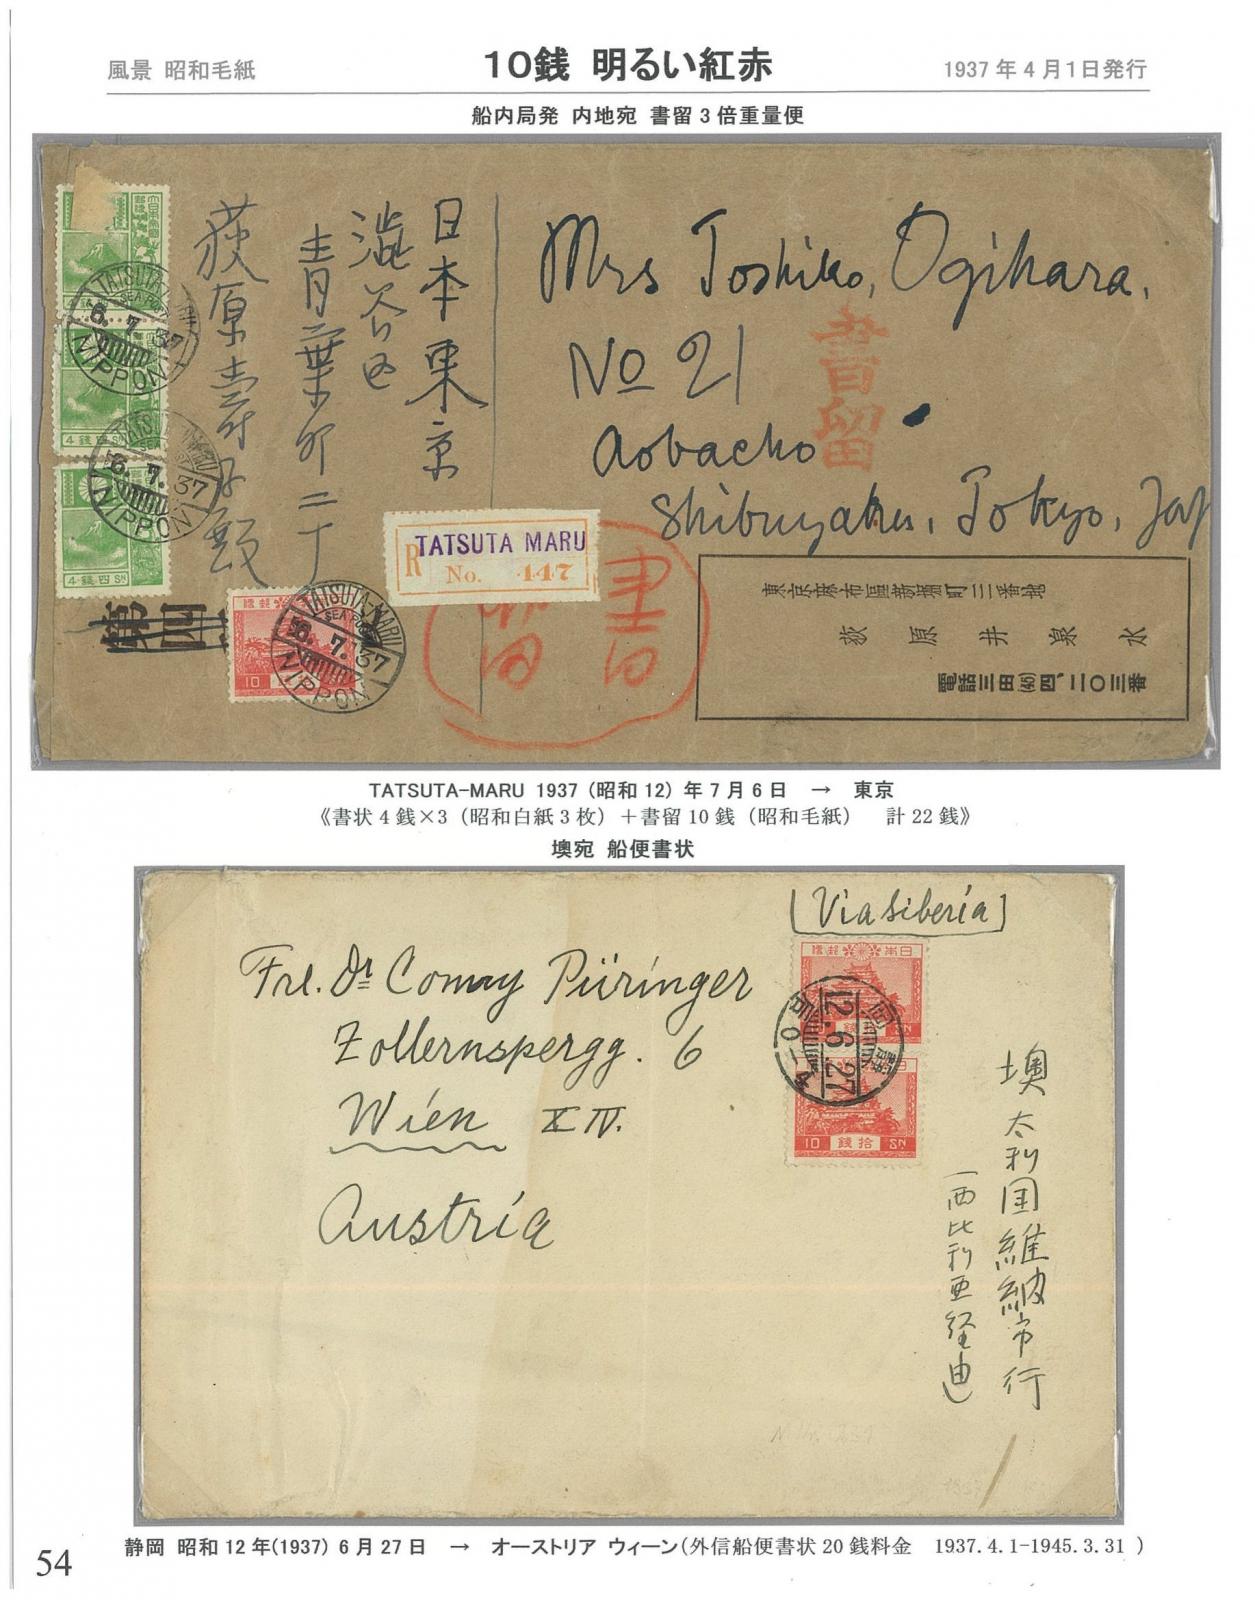 風景 昭和毛紙
10銭 明るい紅赤
1937年4月1日発行
船内局発 内地宛 書留3倍重量便
日本東京
澁谷区
青葉町二十
荻原壽子殿
Mrs Toshiko, Ogihara,
No 21
Aobacho
Shibuyaku, Tokyo, Jap
書留
書留
R TATSUTA MARU
No. 447
TATSUTA-MARU
SEA POST
6.7.37
NIPPON
TATSUTA-MARU
6.7.37
NIPPON
TATSUTA-MARU
SEA POST
6.7.37
NIPPON
4 銭四 SN
4 銭四 SN
10
第四
東京麻布區新堀町二番地
荻原井泉水
電話三田(45)四、二〇三番
TATSUTA-MARU 1937 (昭和12) 年7月6日 → 東京
《書状4銭×3(昭和白紙3枚)+書留10銭(昭和毛紙) 計22銭》
墺宛 船便書状
[Via Siberia]
Frl. Dr Püringer
Zollernspergg. 6
Wien XIV.
Austria
便郵本日
静岡
12.6.27
10 銭拾 SN
墺太利国維納市行
西比利亜経由
静岡 昭和12年(1937) 6月27日 → オーストリア ウィーン(外信船便書状20銭料金 1937.4.1-1945.3.31 )
54